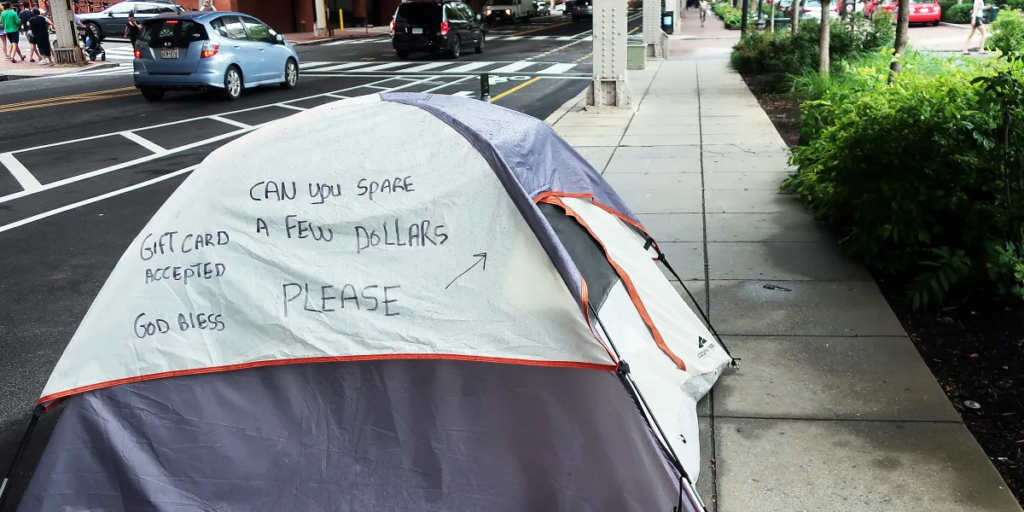 CAN you SPARE
A FEW DOLLARS
PLEASE
GIFT CARD
ACCEPTED
GOD BlESS